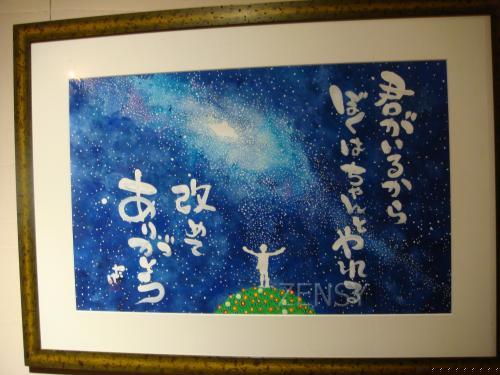 君がいるから
ぼくはちゃんとやれる
改めて
ありがとう
ZENSY